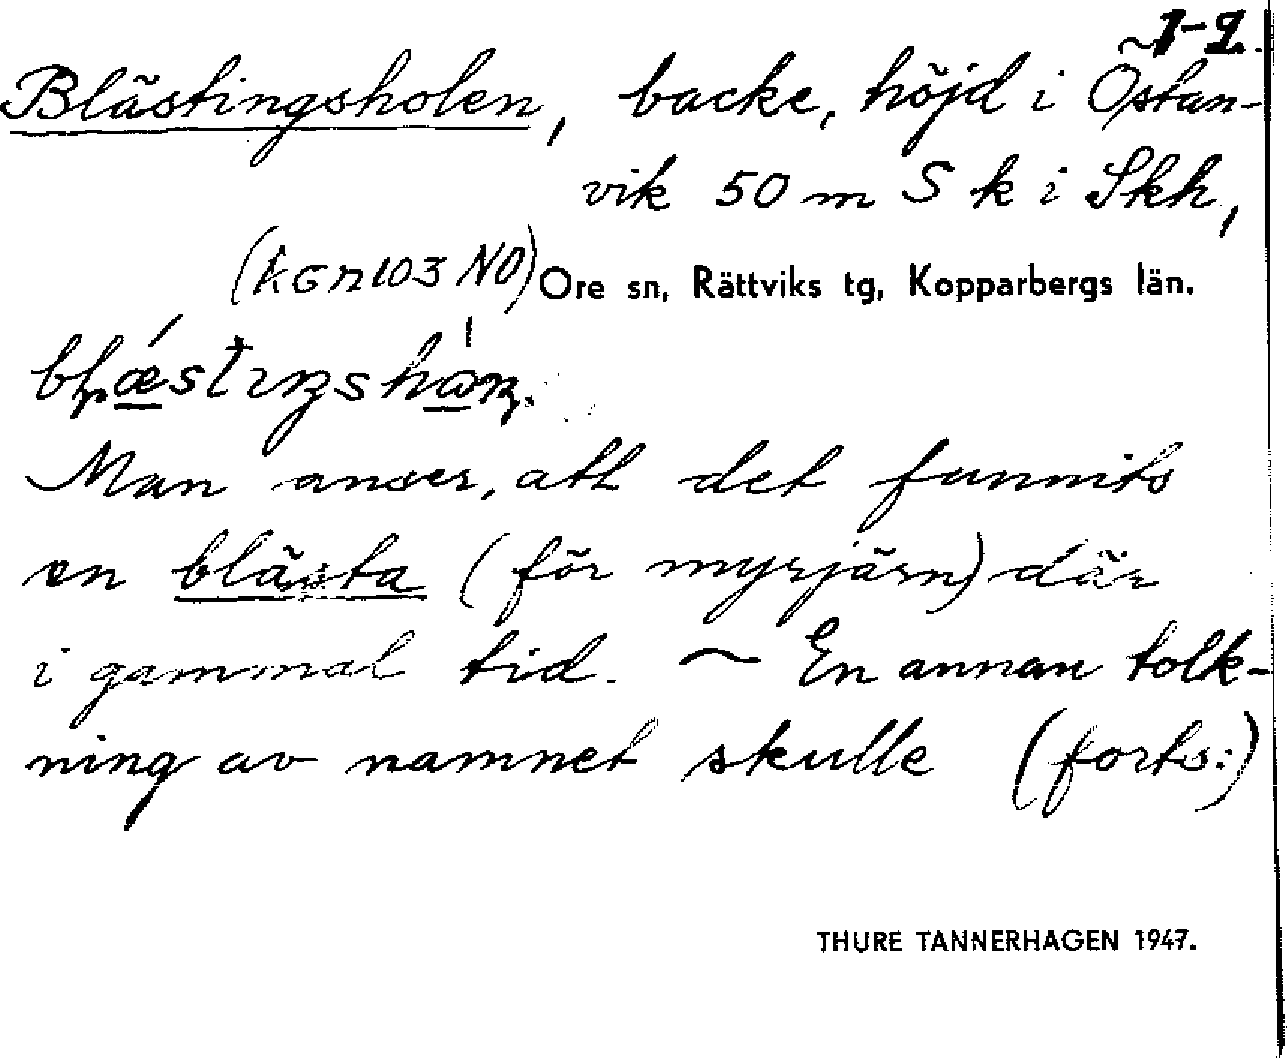 1-2.
Blästingsholen, backe, höjd i Östan-
vik 50 m S k i Skh,
(k G n 103 NO) Ore sn, Rättviks tg, Kopparbergs län.
Man anser, att det funnits
en blästa (för myrjärn) där
i gammal tid. ~ En annan tolk-
ning av namnet skulle (forts:)
THURE TANNERHAGEN 1947.